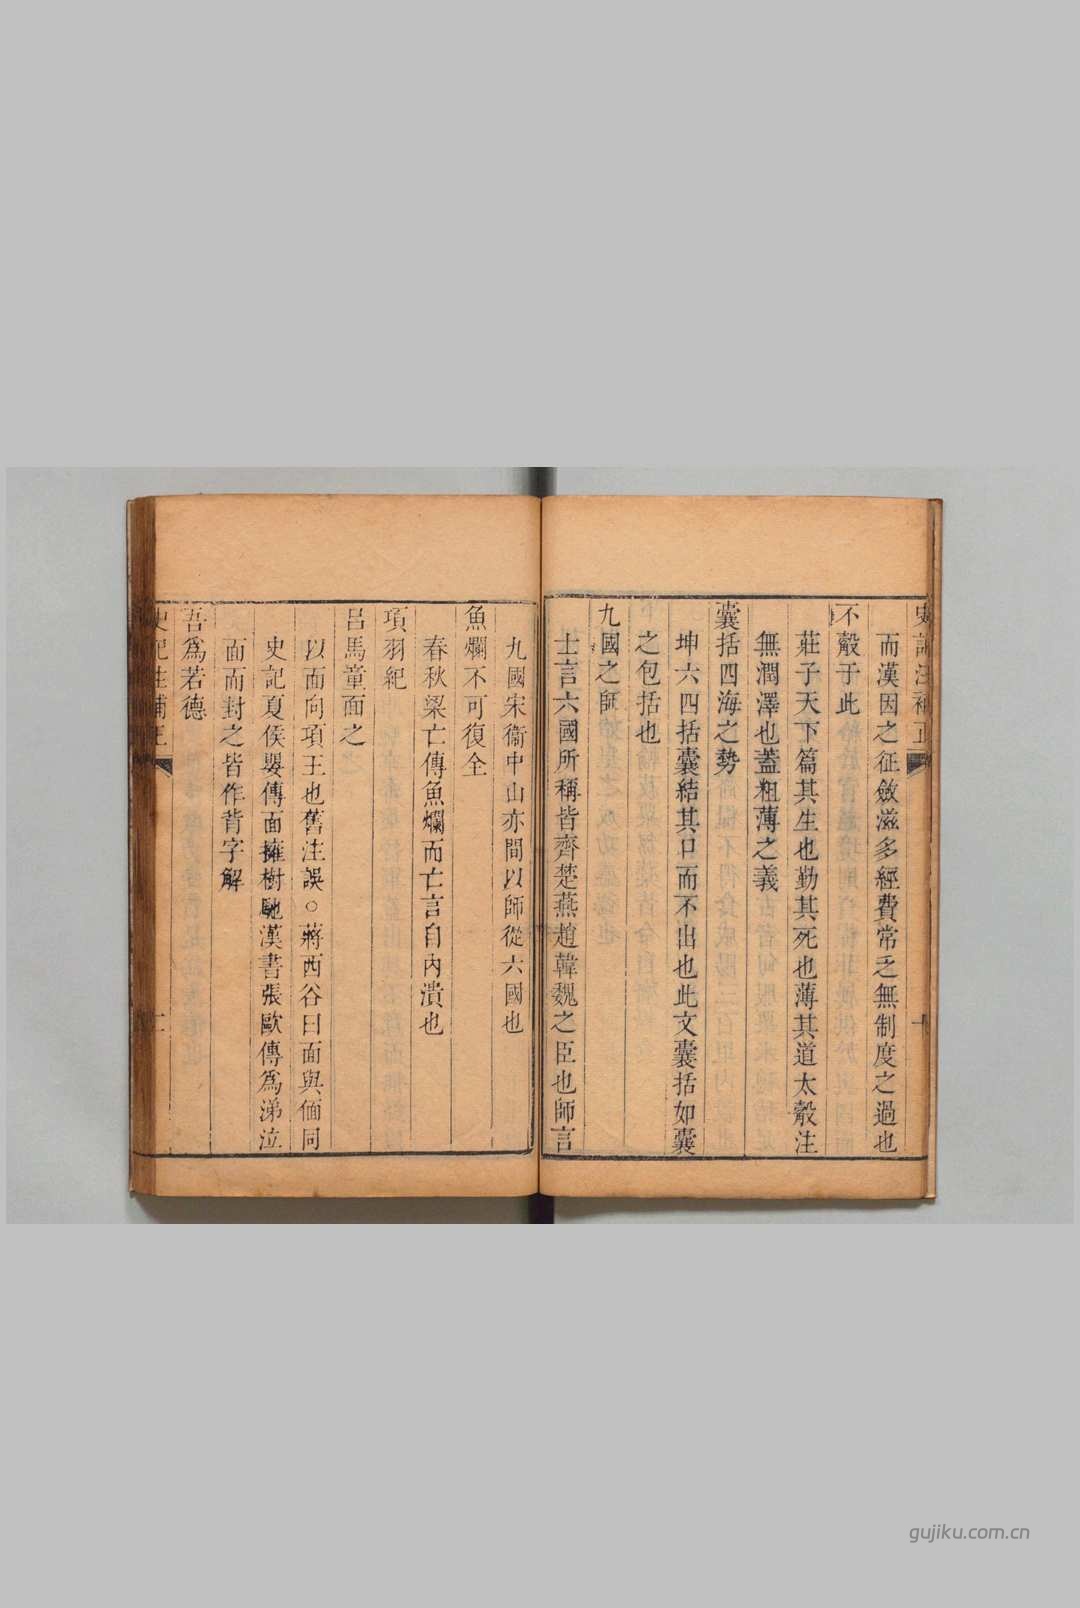 史記注補正
而漢因之征斂滋多經費常乏無制度之過也
不觳于此
莊子天下篇其生也勤其死也薄其道太觳注
無潤澤也蓋粗薄之義
囊括四海之勢
坤六四括囊結其口而不出也此文囊括如囊
之包括也
九國之師
士言六國所稱皆齊楚燕趙韓魏之臣也師言
九國宋衞中山亦間以師從六國也
魚爛不可復全
春秋梁亡傳魚爛而亡言自內潰也
項羽紀
呂馬童面之
以面向項王也舊注誤○蔣西谷曰面與偭同
史記夏侯嬰傳面擁樹馳漢書張歐傳爲涕泣
面而對之皆作背字解
吾爲若德
史記注補正
gujiku.com.cn